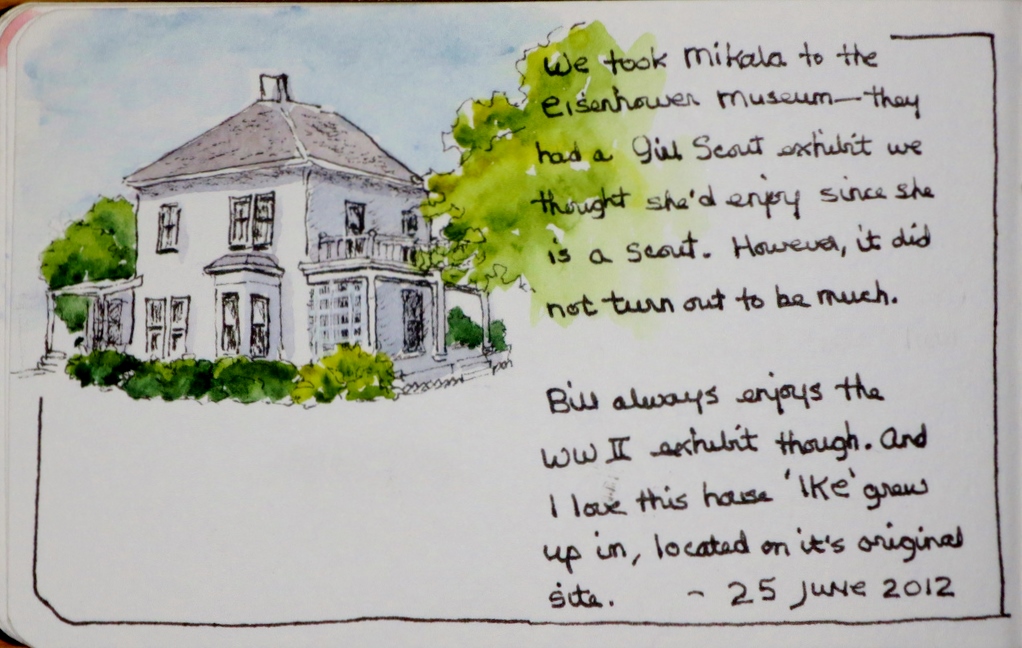 We took Mikala to the
Eisenhower Museum—they
had a Girl Scout exhibit we
thought she'd enjoy since she
is a Scout. However, it did
not turn out to be much.
Bill always enjoys the
WW II exhibit though. And
I love this house 'IKE' grew
up in, located on it's original
site. ~ 25 JUNE 2012